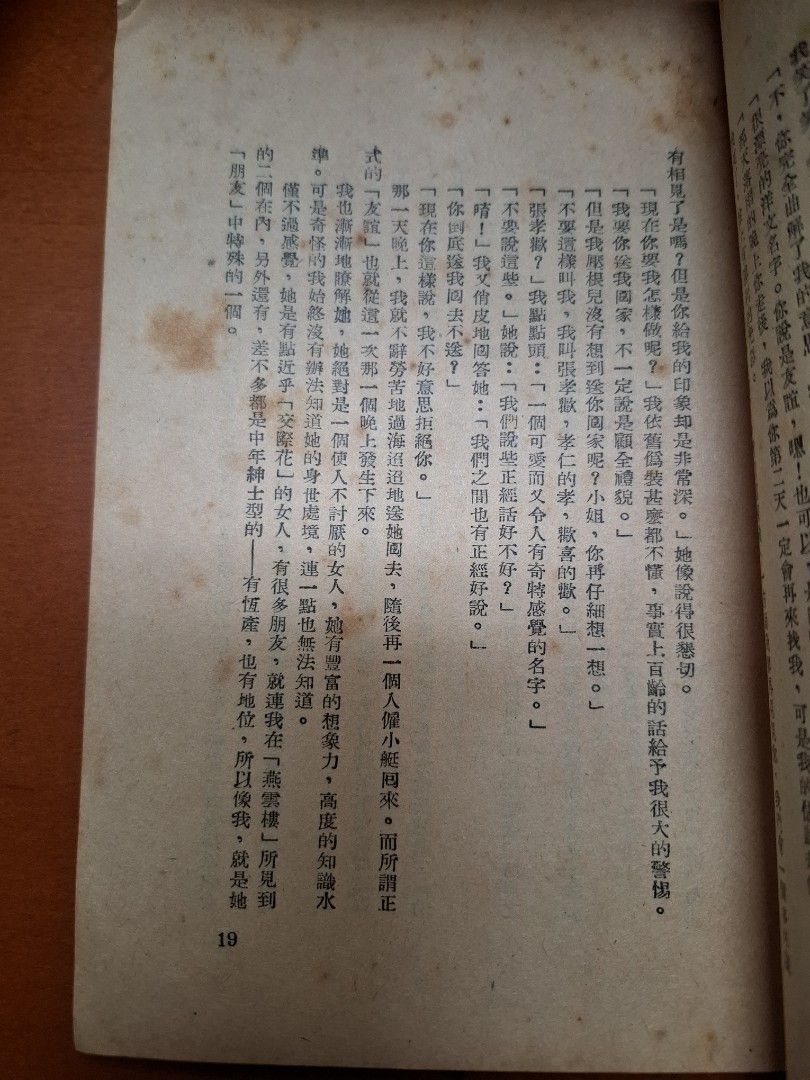 有相見了是嗎？但是你給我的印象却是非常深。」她像說得很懇切。
「現在你要我怎樣做呢？」我依舊僞裝甚麼都不懂，事實上百齡的話給予我很大的警惕。
「我要你送我囘家，不一定說是顧全禮貌。」
「但是我壓根兒沒有想到送你囘家呢？小姐，你再仔細想一想。」
「不要這樣叫我，我叫張孝歡，孝仁的孝，歡喜的歡。」
「張孝歡？」我點點頭：「一個可愛而又令人有奇特感覺的名字。」
「不要說這些。」她說：「我們說些正經話好不好？」
「唷！」我又俏皮地囘答她：「我們之間也有正經好說。」
「你到底送我囘去不送？」
「現在你這樣說，我不好意思拒絕你。」
那一天晚上，我就不辭勞苦地過海迢迢地送她囘去，隨後再一個人僱小艇囘來。而所謂正
式的「友誼」也就從這一次那一個晚上發生下來。
我也漸漸地瞭解她，她絕對是一個使人不討厭的女人，她有豐富的想象力，高度的知識水
準。可是奇怪的我始終沒有辦法知道她的身世處境，連一點也無法知道。
僅不過感覺，她是有點近乎「交際花」的女人，有很多朋友，就連我在「燕雲樓」所見到
的二個在內，另外還有，差不多都是中年紳士型的——有恆產，也有地位，所以像我，就是她
「朋友」中特殊的一個。
19